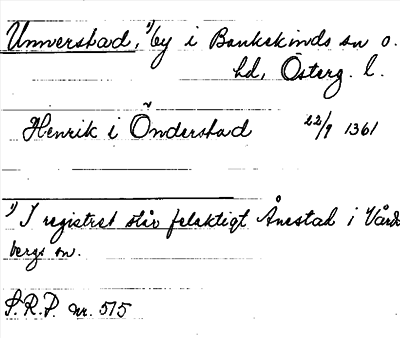 Unnerstad, 1) by i Bankekinds sn o.
hd, Österg. l.
Henrik i Õnderstad 22/9 1361
1) I registret står felaktigt Ånestad i Vårds
bergs sn.
S.R.P. nr. 515